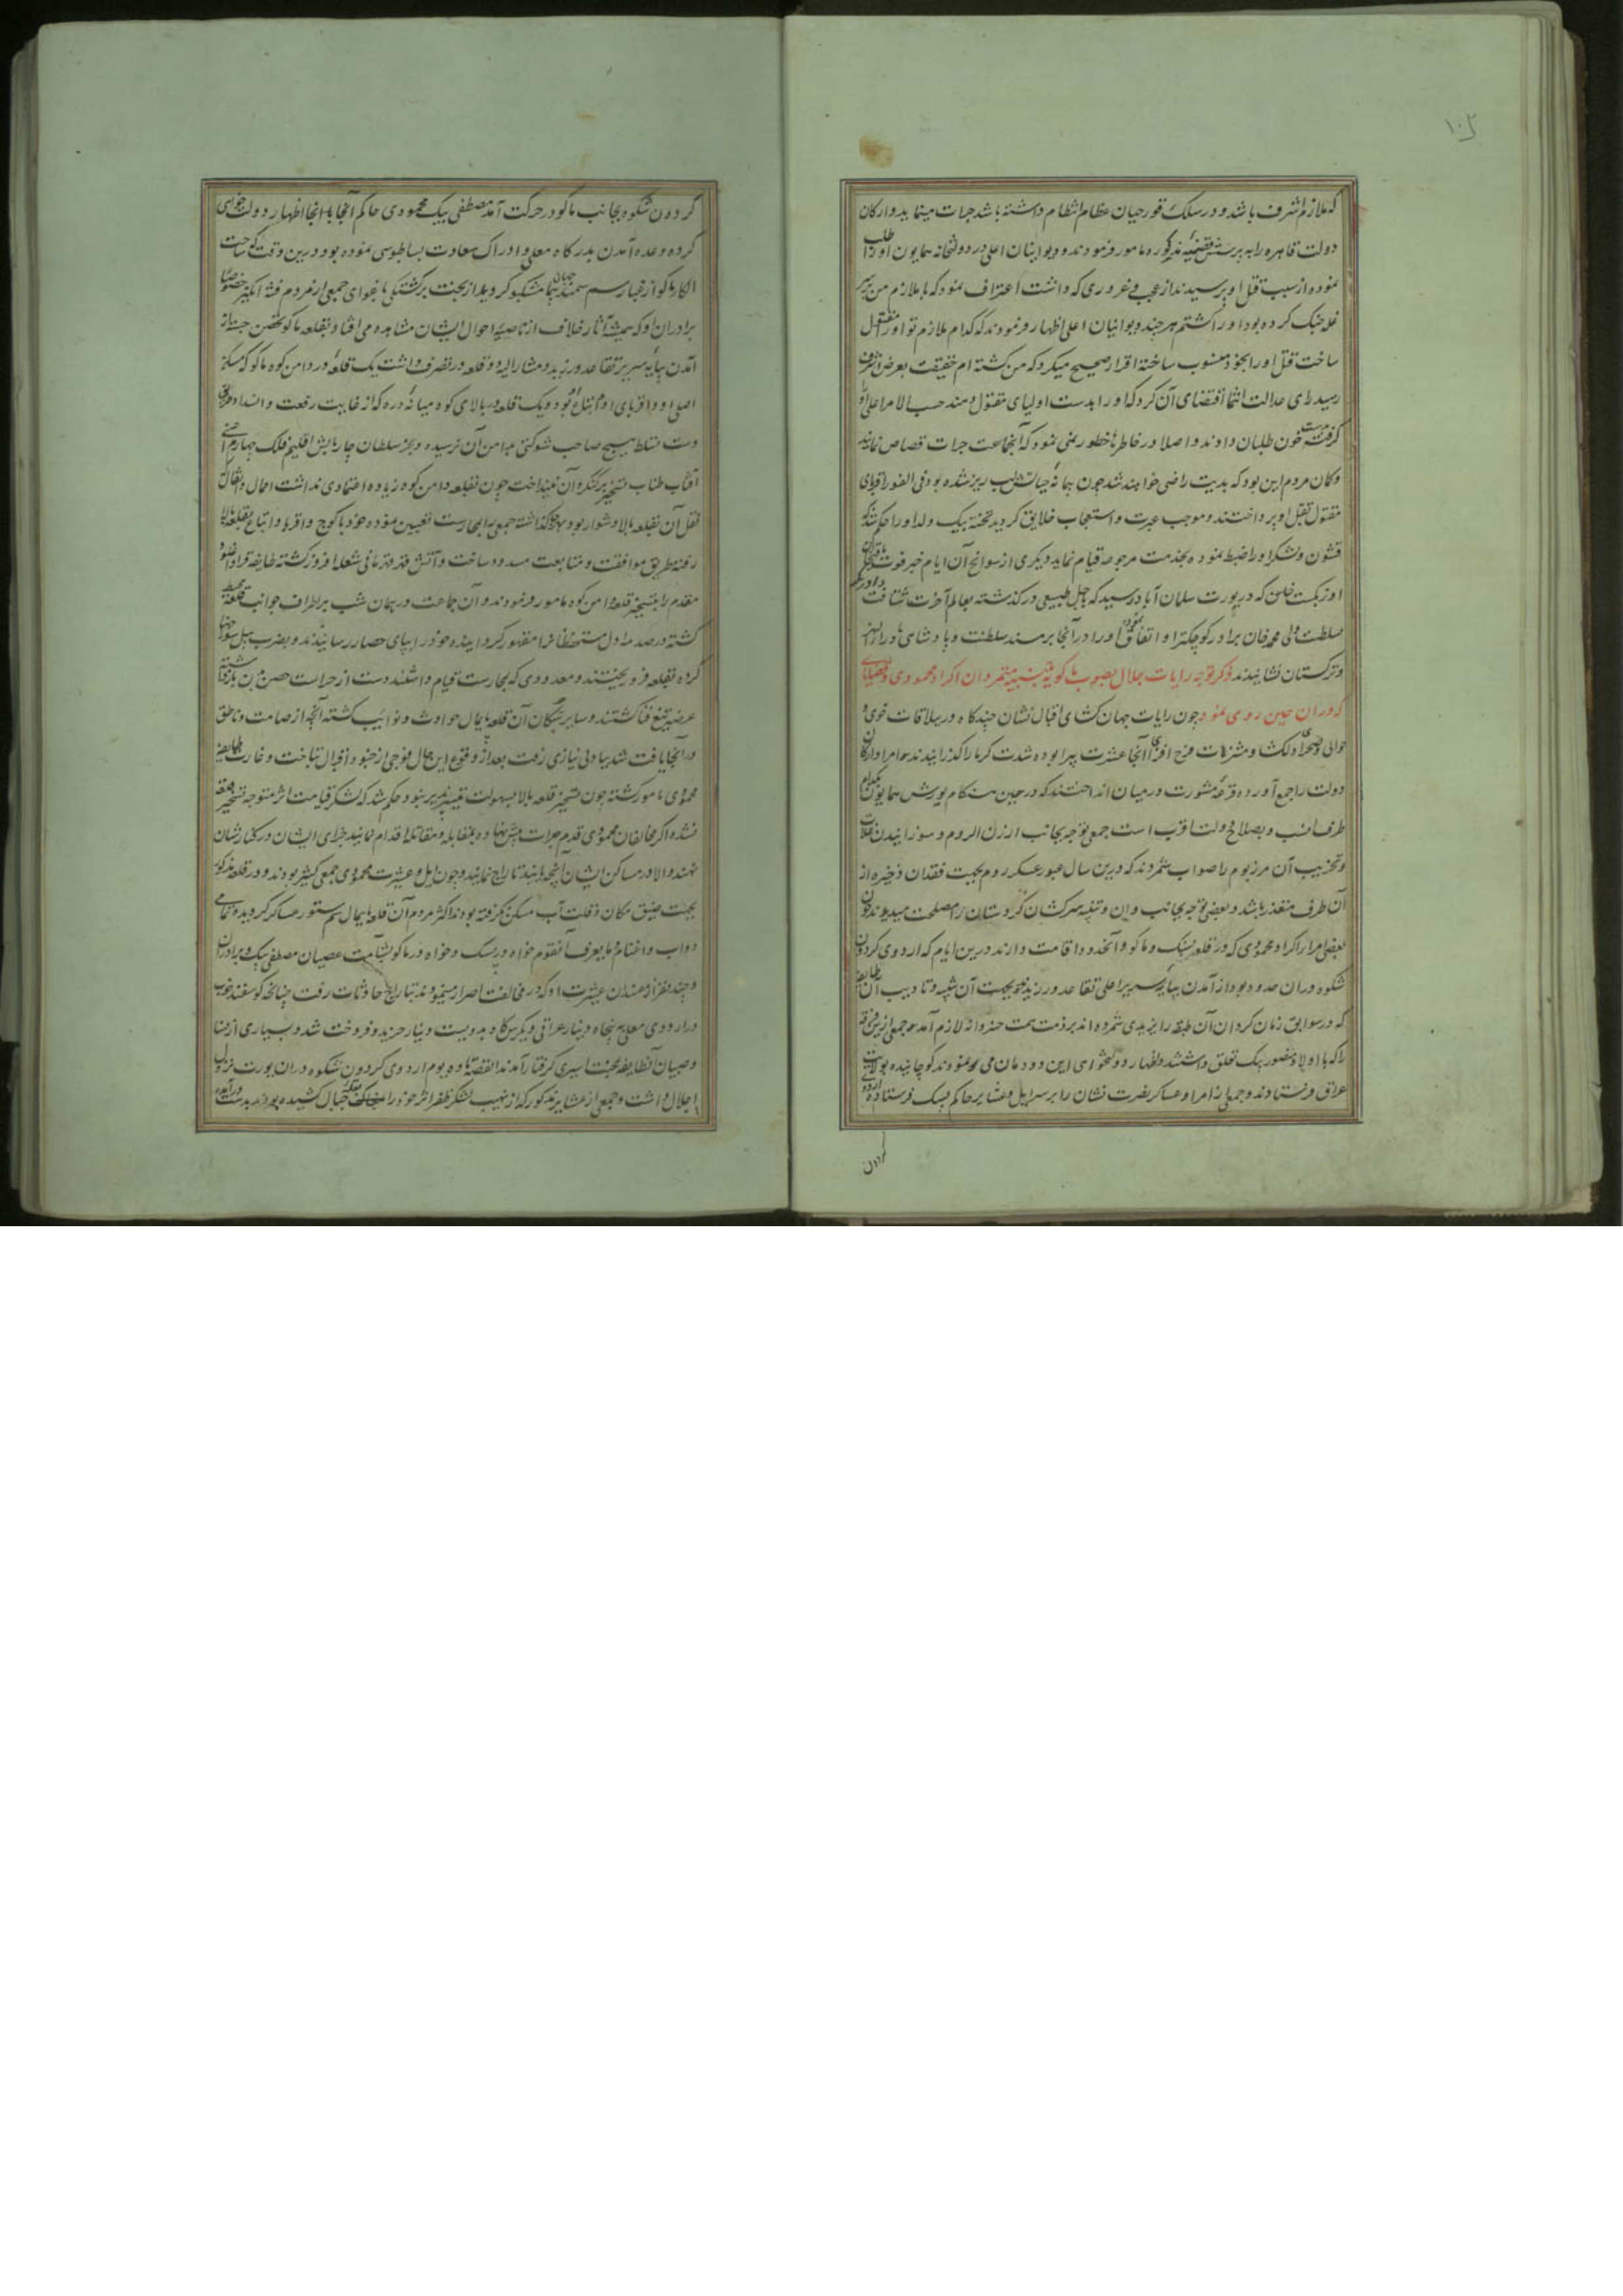 که ملازم اشرف باشد و در سلک قورچیان عظام انتظام داشته باشد جرات مینماید و ارکان
دولت قاهره را به پرسش قضیه مذکوره مامور فرمودند و دیوانیان اعلی در دولتخانه همایون او را طلب
نموده از سبب قتل او پرسیدند از عجب و غروری که داشت اعتراف نمود که با ملازم من بر سر
غله جنک کرده بود او را کشتم هر چند دیوانیان اعلی اظهار فرمودند که کدام ملازم تو او را مقتول
ساخت قتل او را بخود منسوب ساخته اقرار صحیح میکرد که من کشته ام حقیقت بعرض اشرف
رسید رای عدالت انتما اقتضای آن کرد که او را بدست اولیای مقتول دهند حسب الامر اعلی او را
گرفته بدست خون طلبان دادند و اصلا در خاطرها خطور نمی نمود که آنجماعت جرات قصاص نمایند
و کمان مردم این بود که بدیت راضی خواهند شد چون پیمانه حیاتش لب ریز شده بود فی الفور اقربای
مقتول بقتل او پرداختند و موجب عبرت و استعجاب خلایق کردید تخته بیک ولد او را حکم شد که
قشون و لشکر او را ضبط نموده بخدمت مرجوعه قیام نماید دیکری از سوانح آن ایام خبر فوت باقیخان
اوزبکست که در یورت سلمان آباد رسید که باجل طبیعی درکذشته بعالم آخرت شتافت و اوزبکیه
بسلطنت ولی محمد خان برادر کوچکتر او اتفاق نموده او را در آنجا بر مسند سلطنت و پادشاهی ماوراءالنهر
و ترکستان نشانیدند ذکر توجه رایات جلال بصوب ماکو و تنبیه متمردان اکراد محمودی و قضایای
که دران حین روی نمود چون رایات جهان کشای اقبال نشان چند کاه در ییلاقات خوی و
حوالی و صحرای دلکشا و متنزهات فرح افزای آنجا عشرت پیرا بوده شدت کرما را کذرانیدند امرا و ارکان
دولت را جمع آورده قرعه مشورت در میان انداختند که در حین هنکام یورش همایون بکدام
طرف انسب و بصلاح دولت اقرب است جمعی توجه بجانب ارزن الروم و سوزانیدن غلات
و تخریب آن مرز بوم را صواب شمردند که درین سال عبور عسکر روم بجهت فقدان ذخیره از
آن طرف متعذر باشد و بعضی توجه بجانب وان و تنبیه سرکشان کردستان را مصلحت میدیدند چون
بعضی امرا اکراد محمودی که در قلعه پسک و ماکو و آنحدود اقامت دارند درین ایام که اردوی کردون
شکوه دران حدود بود از آمدن بپایه سریر اعلی تقاعد ورزیدند بجهت تنبیه و تادیب آن طایفه
که در سوابق زمان کردان آن طبقه را یزیدی شمرده اند بر ذمت همت خسروانه لازم آمده جمعی ازین فرقه
را که با اولاد منصور بیک تعلق داشتند و اظهار دولتخواهی این دودمان می نمودند کوچانیده بولایت
عراق فرستادند و جمعی از امرا و عساکر نصرت نشان را بر سر ایل و عشایر حاکم پسک فرستاده اردوی
کردون
کردون شکوه بجانب ماکو در حرکت آمد مصطفی بیک محمودی حاکم آنجا با آنکه اظهار دولتخواهی
کرده وعده آمدن بدرکاه معلی و ادراک سعادت بساطبوسی نموده بود درین وقت که ساحت
الکاء ماکو از غبار سم سمند جهان پیما مشکبو کردید از بخت برکشتکی باغوای جمعی از مردم فتنه انکیز خصوصا
برادران او که همیشه آثار خلاف از ناصیه احوال ایشان مشاهده می افتاد بقلعه ماکو متحصن جسته از
آمدن بپایه سریر تقاعد ورزید و مشار الیه دو قلعه در تصرف داشت یک قلعه در دامن کوه ماکو که مسکن
اصلی او و اقربای او و اتباع او بود و یک قلعه در بالای کوه میانه دره که از غایت رفعت و انسداد طرق
دست تسلط هیچ صاحب شوکتی بدامن آن نرسیده و بجز سلطان چاربالش اقلیم فلک چهارم یعنی
آفتاب طناب تسخیر بر کنکره آن نینداخته چون بقلعه دامن کوه زیاده اعتمادی نداشت احمال و اثقال که
نقل آن بقلعه بالا دشوار بود کذاشته جمعی بمحارست تعیین نموده خود با کوچ و اقربا و اتباع بقلعه بالا
رفته طریق موافقت و متابعت مسدود ساخت و آتش قهر قهرمانی شعله افروز کشته طایفه قراداغلو
مقدم را بتسخیر قلعه دامن کوه مامور فرمودند و آن جماعت در همان شب بر اطراف جوانب قلعه محیط
کشته در صدمه اول مستحفظان را مقهور کردانیده خود را بپای حصار رسانیدند و بضرب بیل سوراخها
کرده بقلعه فرو ریختند و معدودی که بحارست قیام داشتند دست از حراست حصن بدن باز داشته
عرضه تیغ فنا کشتند و سایر سکان آن قلعه پایمال حوادث و نوایب کشته آنچه از صامت و ناطق
در آنجا یافت شد بباد بی نیازی رفت بعد از وقوع این حال فوجی از جنود اقبال بتاخت و غارت طایفه
محمودی مامور کشته چون تسخیر قلعه بالا بسهولت تیسیر پذیر نبود حکم شد که لشکر قیامت اثر متوجه تسخیر قلعه
نشده اکر مخالفان محمودی قدم جرات پیش نهاده بمقابله و مقاتله اقدام نمایند جزای ایشان در کنار ایشان
نهند والا در مساکن ایشان آنچه یابند تاراج نمایند و چون ایل و عشیرت محمودی جمعی کثیر بودند و در قلعه مذکور
بجهت ضیق مکان و قلت آب مسکن نکرفته بودند اکثر مردم آن قلعه پایمال سم ستور عساکر کردیده تمامی
دواب و اغنام و مایعرف آنقوم خواه در پسک و خواه در ماکو بشآمت عصیان مصطفی بیک و برادران
و چند نفر از مفسدان عشیرت او که در مخالفت اصرار مینمودند بتاراج حادثات رفت چنانچه کوسفند خوب
در اردوی معلی به پنجاه دینار عراقی و یکراس کاو بدویست دینار خرید و فروخت شد و بسیاری از نسا
و صبیان آنطایفه بمحنت اسیری کرفتار آمدند القصه تا ده یوم اردوی کردون شکوه دران یورت نزول
اجلال داشت و جمعی از عشایر مذکور که از نهیب لشکر ظفر اثر خود را بقلل جبال کشیده بودند بدست درآمده